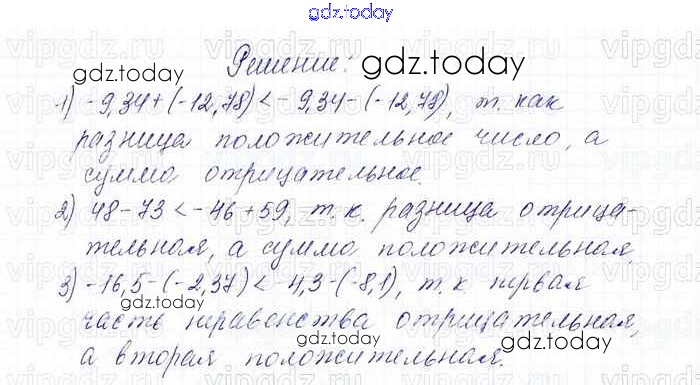 gdz.today
Решение:
gdz.today
gdz.today
1) -9,34+(-12,78)<-9,34-(-12,78), т. как
разница положительное число, а
сумма отрицательное.
2) 48-73<-46+59, т. к. разница отрица-
тельная, а сумма положительная
3) -16,5-(-2,37)<-4,3-(-8,1), т. к первая
gdz.today
часть неравенства отрицательная,
gdz.today
а вторая положительная.
gdz.today